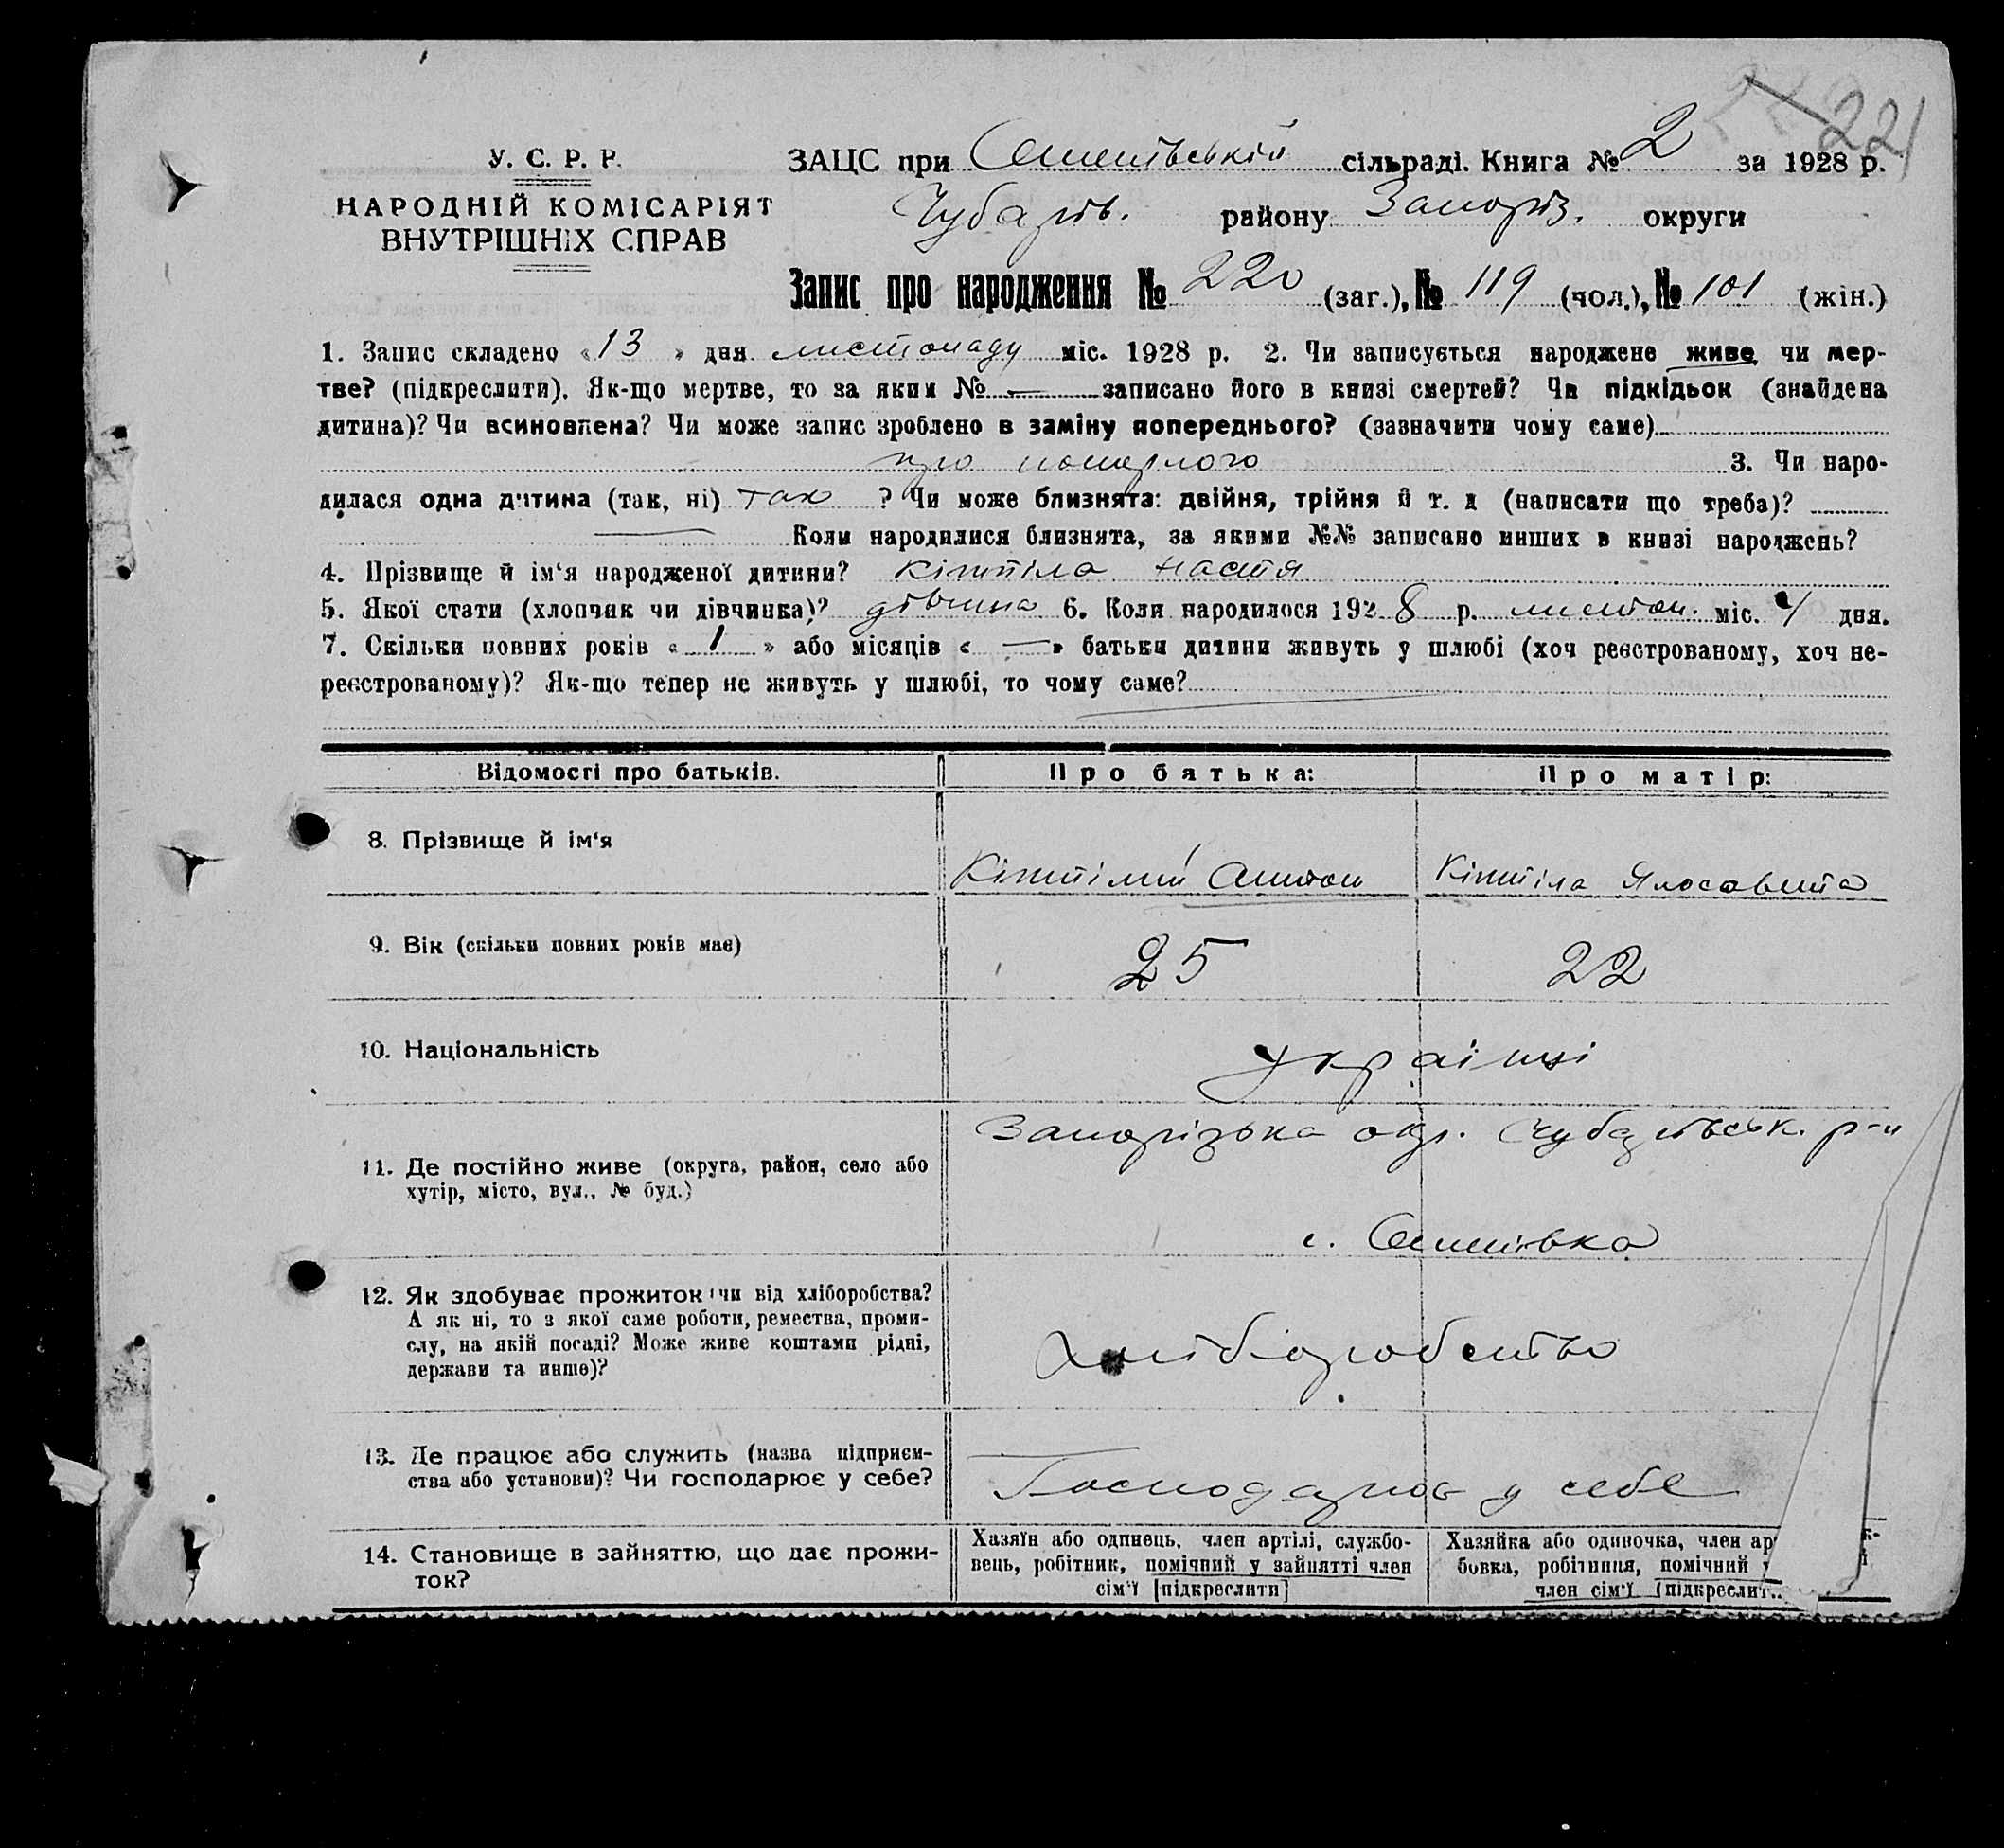 221
У. С. Р. Р.
НАРОДНІЙ КОМІСАРІЯТ
ВНУТРІШНІХ СПРАВ
ЗАЦС при сільраді. Книга № 2 за 1928 р.
Чубарів. району Запоріз. округи
Запис про народження № 220 (заг.), № 119 (чол.), № 101 (жін.)
1. Запис складено «13» дня листопаду міс. 1928 р. 2. Чи записується народжене живе чи мер-
тве? (підкреслити). Як-що мертве, то за яким № — записано його в книзі смертей? Чи підкідьок (знайдена
дитина)? Чи всиновлена? Чи може запис зроблено в заміну попереднього? (зазначити чому саме)
про померлого 3. Чи наро-
дилася одна дитина (так, ні) так ? Чи може близнята: двійня, трійня й т. д (написати що треба)?
— Коли народилися близнята, за якими №№ записано инших в книзі народжень?
4. Прізвище й ім'я народженої дитини? Кіптіла Настя
5. Якої стати (хлопчик чи дівчинка)? дівчина 6. Коли народилося 1928 р. листоп. міс. 4 дня.
7. Скільки повних років «1» або місяців «—» батьки дитини живуть у шлюбі (хоч реєстрованому, хоч не-
реєстрованому)? Як-що тепер не живуть у шлюбі, то чому саме?
Відомості про батьків. Про батька: Про матір:
8. Прізвище й ім'я Кіптілий Антон Кіптіла Ялосавита
9. Вік (скільки повних років має) 25 22
10. Національність українці
11. Де постійно живе (округа, район, село або
хутір, місто, вул., № буд.)
Запорізька окр. Чубарівськ. р-н
с.
12. Як здобуває прожиток чи від хліборобства?
А як ні, то з якої саме роботи, ремества, проми-
слу, на якій посаді? Може живе коштами рідні,
держави та инше)?
хліборобство
13. Де працює або служить (назва підприєм-
ства або установи)? Чи господарює у себе?
Господарює у себе
14. Становище в зайняттю, що дає прожи-
ток?
Хазяїн або одинець, член артілі, службо-
вець, робітник, помічний у зайнятті член
сім'ї [підкреслити]
Хазяйка або одиночка, член ар
бовка, робітниця, помічний
член сім'ї (підкреслит